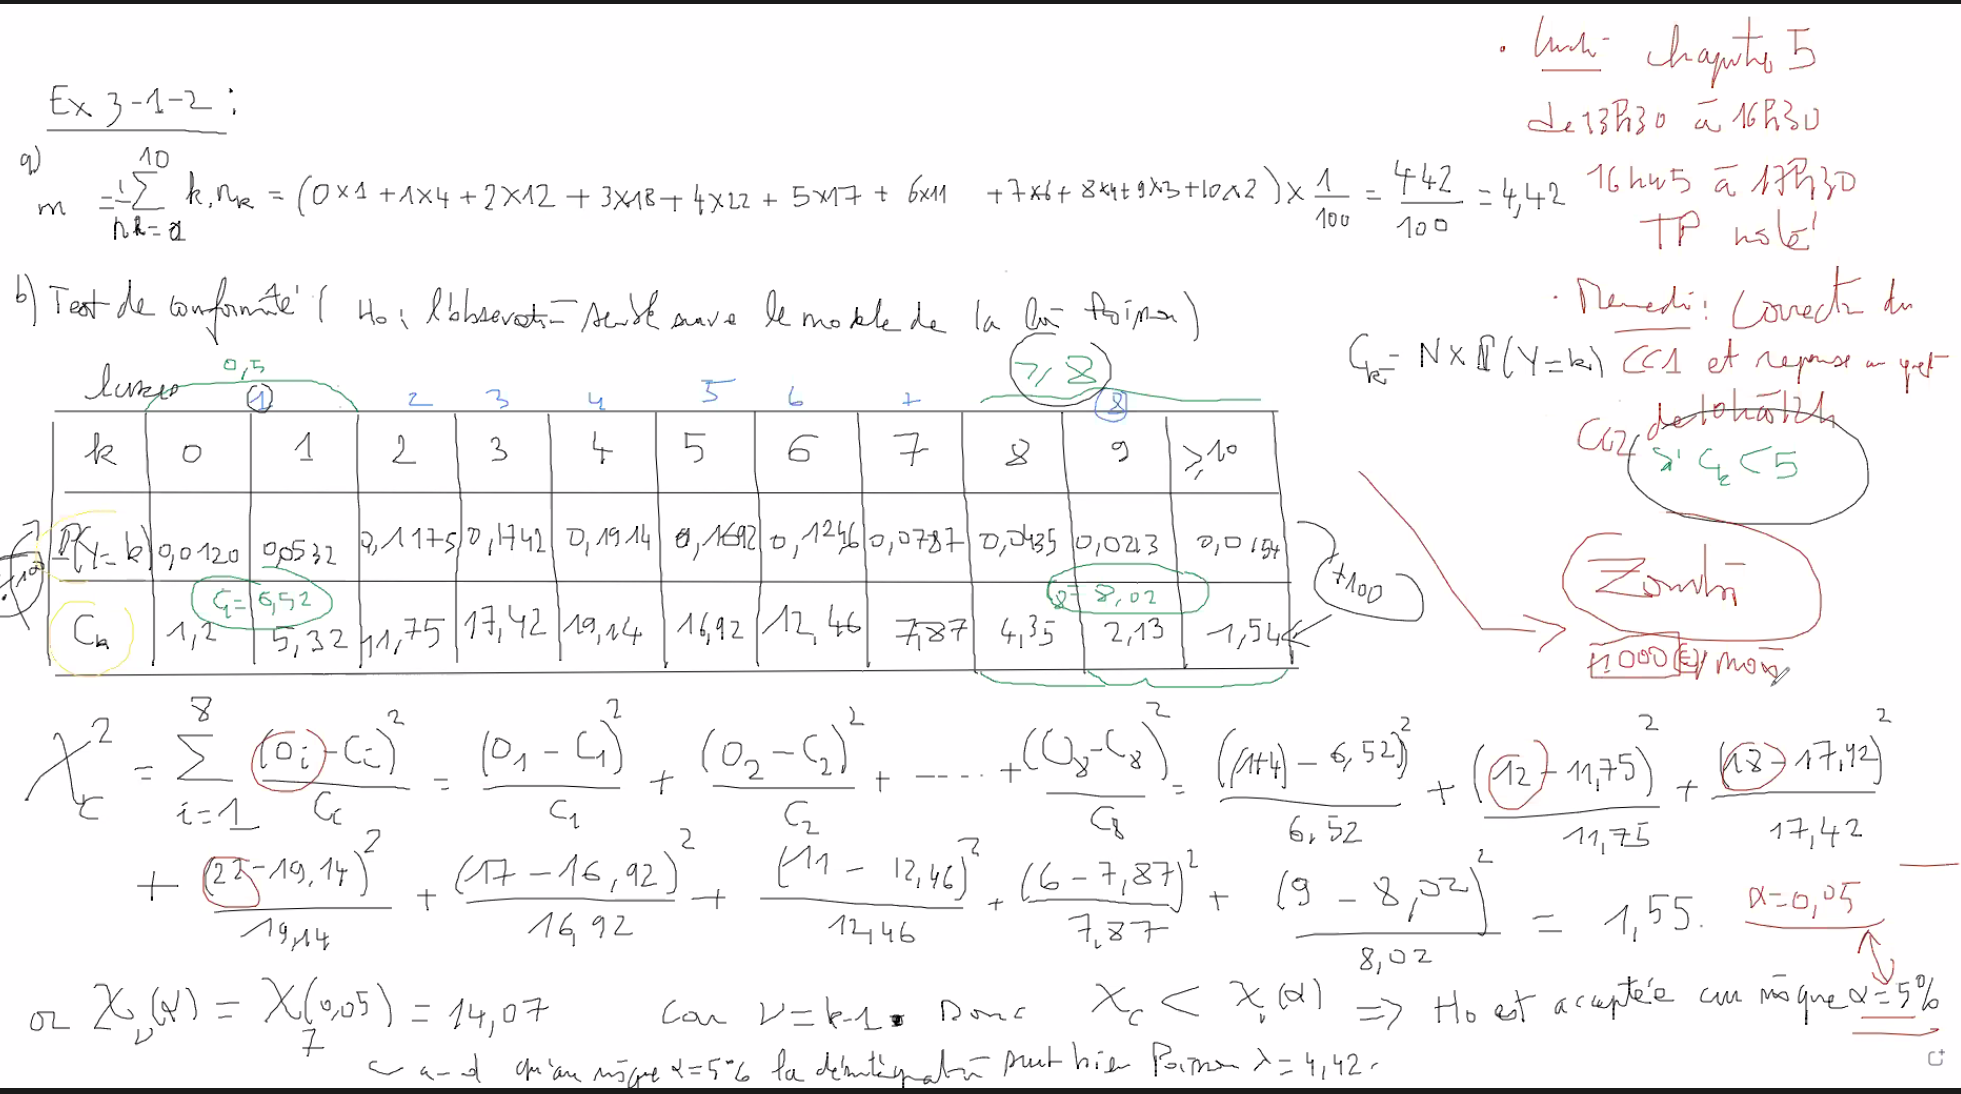 Ex 3-1-2 :
a)
m = 1/n ∑_{k=0}^{10} k.n_k = (0×1 + 1×4 + 2×12 + 3×18 + 4×22 + 5×17 + 6×11 + 7×6 + 8×4 + 9×3 + 10×2) × 1/100 = 442/100 = 4,42
b) Test de conformité ( H0 : l'observation semble suivre le modèle de la loi Poisson)
0,5 ≥ 8
1 2 3 4 5 6 7 8
k 0 1 2 3 4 5 6 7 8 9 ≥10
P(Y=k) 0,0120 0,0532 0,1175 0,1742 0,1914 0,1692 0,1246 0,0787 0,0435 0,0213 0,0154
C1=6,52 8,02
Ck 1,2 5,32 11,75 17,42 19,14 16,92 12,46 7,87 4,35 2,13 1,54
×100
χ²c = ∑_{i=1}^{8} (Oi - Ci)²/Ci = (O1 - C1)²/C1 + (O2 - C2)²/C2 + ---- + (O8 - C8)²/C8 = ((1+4) - 6,52)²/6,52 + (12 - 11,75)²/11,75 + (18 - 17,42)²/17,42
+ (22 - 19,14)²/19,14 + (17 - 16,92)²/16,92 + (11 - 12,46)²/12,46 + (6 - 7,87)²/7,87 + (9 - 8,02)²/8,02 = 1,55.
α=0,05
or χν(α) = χ7(0,05) = 14,07 car ν = k-1. Donc χc < χν(α) => H0 est acceptée au risque α=5%
c-a-d qu'au risque α=5% la désintégration suit bien Poisson λ=4,42.
. Lundi chapitre 5
de 13h30 à 16h30
16h45 à 17h30
TP noté
. Mercredi : Correction du
CC1 et réponse au
CC2
Ck = N × P(Y=k)
si Ck < 5
1000 € / mois